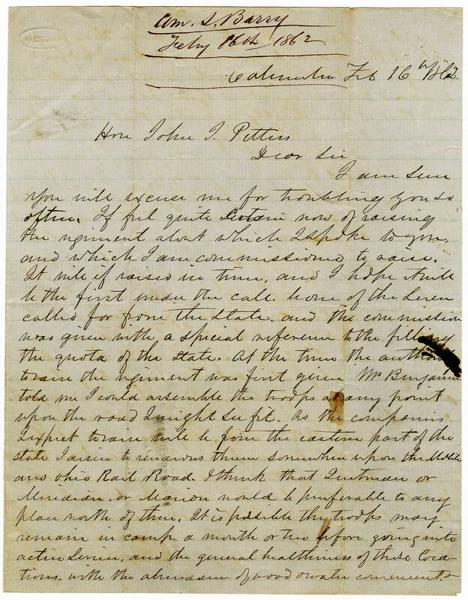 Wm. S. Barry
Feby 16th 1862
Columbus Feb 16th 1862
Hon John J. Pettus
Dear Sir
I am sure
you will excuse me for troubling you so
often. I feel quite certain now of raising
the regiment about which I spoke to you
and which I am commissioned to raise.
It will if raised in time, and I hope it will
be the first under the call. be one of the seven
called for from the State. and the commission
was given with a special reference to the filling
the quota of the State. At the time the authority
to raise the regiment was first given Mr Benjamin
told me I could assemble the troops at any point
upon the road I might see fit. As the companies
I expect to raise will be from the eastern part of the
state I desire to rendezvous them somewhere upon the Mobile
and Ohio Rail Road. I think that Quitman or
Meridian or Marion would be preferable to any
place north of them. It is possible the troops may
remain in camp a month or two before going into
active service, and the general healthiness of these loca-
tions with the abundance of wood & water convenient,